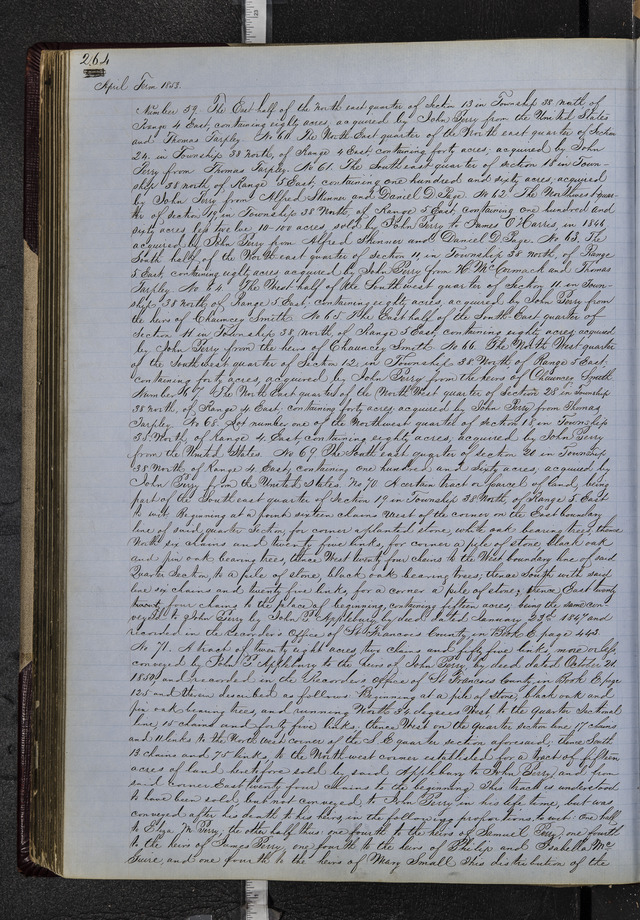 264
April Term 1853.
Number 59. The East half of the North east quarter of Section 13 in Township 38 North of
Range 4 East, containing eighty acres, acquired by John Perry from the United States
and Thomas Tarpley. No 60. The North East quarter of the North east quarter of Section
24. in Township 38 North, of Range 4 East, containing forty acres, acquired by John
Perry from Thomas Tarpley. No 61. The South east quarter of section 18 in Town-
ship 38 north of Range 5 East, containing one hundred and sixty acres, acquired
by John Perry from Alfred Skinner and Daniel D. Page. No 62. The Northwest quar-
ter of section 19 in Township 38 North, of Range 5 East, containing one hundred and
sixty acres less twelve 10-100 acres sold by John Perry to James O'Harris, in 1846,
acquired by John Perry from Alfred Skinner and Daniel D. Page. No 63. The
South half of the North east quarter of section 11 in Township 38 north, of Range
5 East, containing eighty acres acquired by John Perry from H. McCormack and Thomas
Tarpley. No 64. The West half of the Southwest quarter of Section 11 in Town-
ship 38 North of Range 5 East, containing eighty acres, acquired by John Perry from
the heirs of Chauncey Smith. No 65. The East half of the South East quarter of
Section 11 in Township 38 North, of Range 5 East, containing eighty acres acquired
by John Perry from the heirs of Chauncey Smith. No 66. The North West quarter
of the Southwest quarter of Section 12, in Township 38 North of Range 5 East,
containing forty acres, acquired by John Perry from the heirs of Chauncey Smith.
Number 67. The North East quarter of the North West quarter of section 28 in Township
38 north, of Range 4 East, containing forty acres acquired by John Perry from Thomas
Tarpley. No 68. Lot number one of the Northwest quarter of section 18 in Township
35 North, of Range 4 East containing eighty acres, acquired by John Perry
from the United States. No 69. The South east quarter of section 21 in Township
38 North, of Range 4 East, containing one hundred and sixty acres, acquired by
John Perry from the United States. No 70. A certain tract or parcel of land, being
part of the South east quarter of Section 19 in Township 38 North, of Range 5 East
to wit, Beginning at a point sixteen chains West of the corner on the East boundary
line of said quarter Section, for corner a planted stone, white oak bearing tree, thence
North six chains and twenty five links, for corner a pile of stone, black oak
and pin oak bearing trees, thence West twenty four chains to the West boundary line of said
Quarter Section, to a pile of stone, black oak bearing trees, thence South with said
line six chains and twenty five links, for a corner a pile of stone, thence East twenty
twenty four chains to the place of beginning, containing fifteen acres, being the same con-
veyed to John Perry by John P. Appleburry by deed dated January 23rd 1847 and
recorded in the Recorders Office of St Francois County, in Book E, page 443.
No 71. A tract of twenty eight acres, two chains and fifty five links, more or less
conveyed by John P. Appleburry to the heirs of John Perry by deed dated October 21
1850, and recorded in the Recorders office of St Francois County, in Book E, page
125 and therein described as follows: Beginning at a pile of stone, black oak and
pin oak bearing trees, and running North 1/2 degree West, to the Quarter Sectional
line, 15 chains and forty five links, thence West on the quarter section line 17 chains
and 11 links to the North west corner of the S E quarter section aforesaid, thence South
13 chains and 75 links to the North west corner established for a tract of fifteen
acres of land heretofore sold by said Appleburry to John Perry, and from
said corner East twenty four chains to the beginning. This tract is understood
to have been sold, but not conveyed to John Perry in his life time, but was
conveyed after his death to his heirs, in the following proportions, to wit: one half
to Eliza M Perry, the other half thus: one fourth to the heirs of Samuel Perry, one fourth
to the heirs of James Perry, one fourth to the heirs of Philip and Isabella Mc
Guire, and one fourth to the heirs of Mary Small. This distribution of the